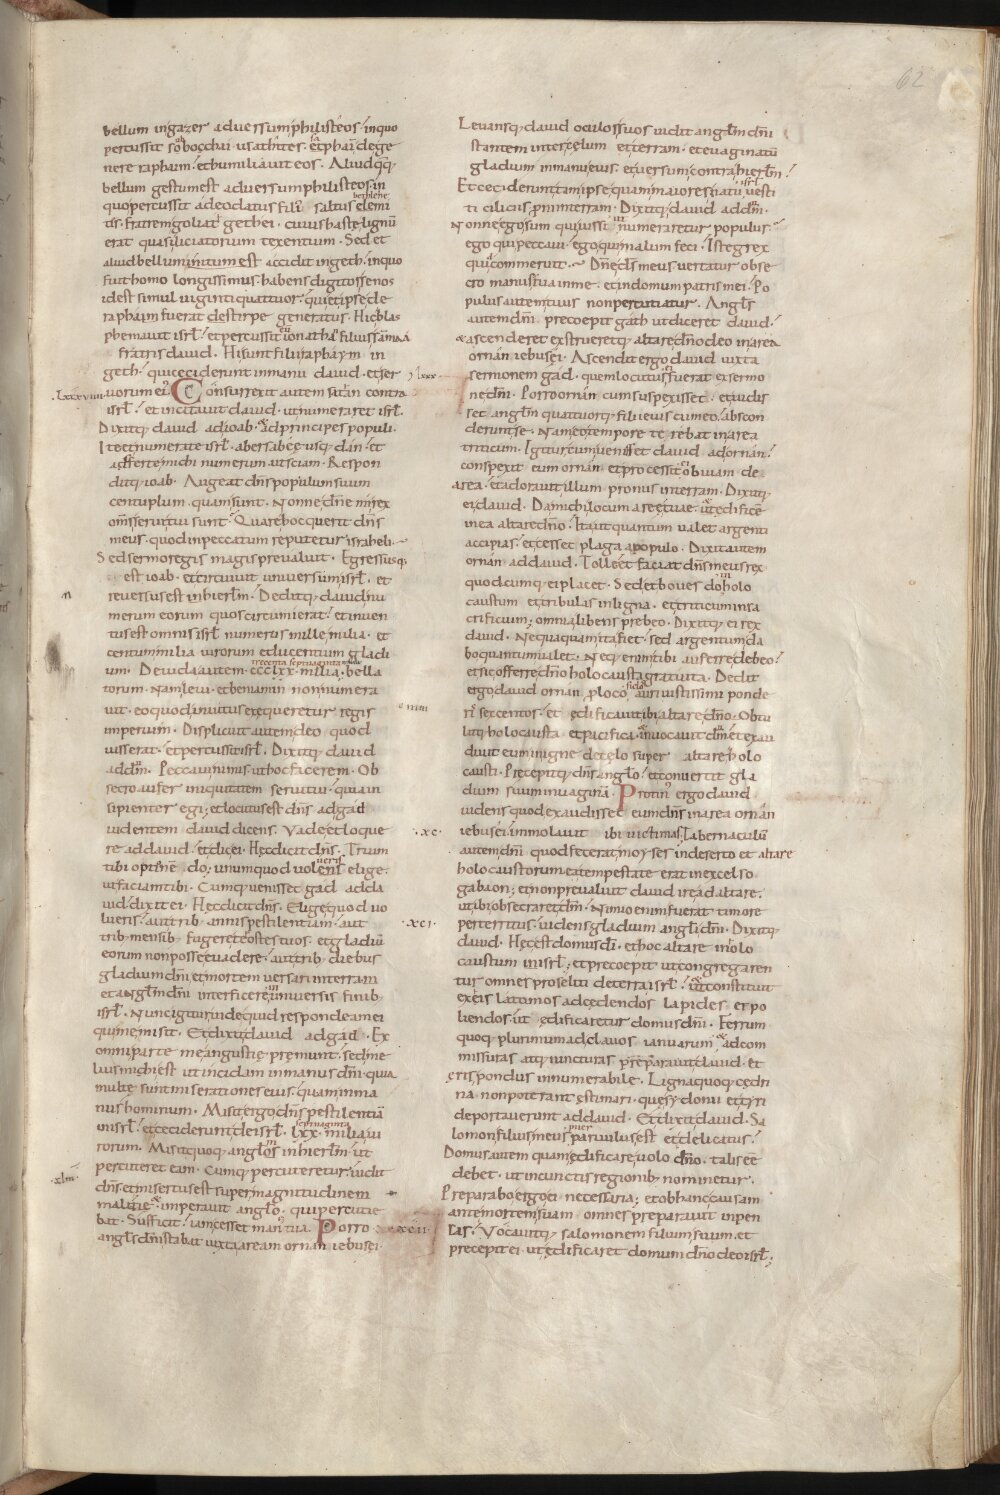 62
bellum ingazer adversum philisteos. inquo
percussit sobocchai usathites. etphai dege
nere raphaim. ethumiliavit eos. Aliudq;
bellum gestum est adversum philisteos. in
quo percussit adeodatus fili' saltus
fratrem goliat gethei. cuius hastę lignū
erat quasi liciatorium texentium. Sed et
aliud bellum est accidit ingeth. inquo
fuit homo longissimus. habens digitos senos
idest simul viginti quattuor. qui et ipse de
raphaim fuerat destirpe generatus. Hic blas
phemavit isrl. et percussit eum ionathā filius sāmaa
fratris david. Hi sunt filii raphaym in
geth. qui ceciderunt in manu david. et ser
.lxxxviiii. vorum ei'. Consurrexit autem satan contra
isrl. et incitavit david. ut numeraret isrl.
Dixitq; david ad ioab. & ad principes populi.
Ite et numerate isrl. abersabee usq; dan. et
afferte michi numerum ut sciam. Respon
ditq; ioab. Augeat dns populum suum
centuplum. quam sunt. Nonne dne mi rex
oms servi tui sunt. Quare hoc querit dns
meus. quod in peccatum reputetur israheli.
Sed sermo regis magis prevaluit. Egressusq;
est ioab. et circuivit universum isrl. et
reversus est in hierlm. Deditq; davidi nu
merum eorum quos circumierat. et inven
tus est omnis isrl numerus mille milia. et
centum milia virorum educentium gladi
um. De iuda autem. cccclxx. milia. bella
torum. Nam levi. et beniamin non numera
vit. eo quod invitus exequeretur regis
imperium. Displicuit autem deo quod
iusserat. et percussit isrl. Dixitq; david
ad dm. Peccavi nimis. ut hoc facerem. Ob
secro aufer iniquitatem servi tui. quia in
sipienter egi. et locutus est dns ad gad
videntem david dicens. Vade et loque
re ad david. et dic ei. Hęc dicit dns. Trium
tibi optionē do. unum quod volueris elige.
ut faciam tibi. Cumq; venisset gad ad da
vid. dixit ei. Hęc dicit dns. Elige quod vo
lueris. aut trib; annis pestilentiam. aut
trib; mensib; fugere te hostes tuos. et gladiū
eorum non posse evadere. aut trib; diebus
gladium dni et mortem versari in terram
et anglm dni interficere in universis finib;
isrl. Nunc igitur vide quid respondeam ei
qui me misit. Et dixit david ad gad. Ex
omni parte me angustię premunt. sed me
lius mihi est ut incidam in manus dni. quia
multę sunt miserationes eius. quam in ma
nus hominum. Misit ergo dns pestilentiā
in isrl. et ceciderunt de isrl. lxx. milia vi
rorum. Misit quoq; anglm in hierlm. ut
percuteret eam. Cumq; percuteretur. vidit
dns. et misertus est super magnitudinem
malitię. & imperavit anglo. qui percutie
bat. Sufficit. iam cesset man' tua. Porro
angls dni stabat iuxta aream ornan iebusei.
Levansq; david oculos suos vidit anglm dni
stantem inter cęlum et terram. et evaginatū
gladium in manu eius. et versum contra hierlm.
Et ceciderunt tam ipse quam maiores natu isrl vesti
ti ciliciis proni in terram. Dixitq; david ad dm.
Nonne ego sum qui iussi ut numeraretur populus.
ego qui peccavi. ego qui malum feci. Iste grex
quid commeruit. Dne ds meus vertatur obse
cro manus tua in me. et in domum patris mei. Po
pulus autem tuus non percutiatur. Angls
autem dni precoepit gath ut diceret david.
& ascenderet extrueretq; altare dno deo in area
ornan iebusei. Ascendit ergo david iuxta
sermonem gad. quem locutus fuerat ex sermo
ne dni. Porro ornan cum suspexisset. et vidis
set anglm quattuorq; filii eius cum eo. abscon
derunt se. Nam eo tempore terebat in area
triticum. Igitur cum venisset david ad ornan.
conspexit eum ornan. et processit obviam de
area. et adoravit illum pronus in terram. Dixitq;
ei david. Da michi locum areę tuae. ut ędificē
in ea altare dno. Ita ut quantum valet argenti
accipias. et cesset plaga a populo. Dixit autem
ornan ad david. Tolle et faciat dns meus rex
quodcumq; ei placet. Sed et boves do in holo
caustum et tribulas in ligna. et triticum in sa
crificium; omnia libens prebeo. Dixitq; ei rex
david. Nequaquam ita fiet. sed argentum da
bo quantum valet. Neq; enim tibi auferre debeo.
et sic offerre dno holocausta gratuita. Dedit
ergo david ornan p loco siclos auri iustissimi ponde
ris sexcentos. et ędificavit ibi altare dno. Obtu
litq; holocausta et pacifica. & invocavit dm. et exau
divit eum in igne de cęlo super altare holo
causti. Precepitq; dns anglo. et convertit gla
dium suum in vaginā. Protin' ergo david
videns quod exaudisset eum dns in area ornan
.xc. iebusei. immolavit ibi victimas. Tabernaculū
autem dni quod fecerat moyses in deserto et altare
holocaustorum ea tempestate erat in excelso
gabaon; et non prevaluit david ire ad altare.
.xci. ut ibi obsecraret dm. Nimio enim fuerat timore
perterritus. videns gladium angli dni. Dixitq;
david. Hęc est domus di. et hoc altare in olo
caustum in isrl; et precoepit ut congregaren
tur omnes proseliti de terra isrl. & constituit
ex eis latomos ad cędendos lapides et po
liendos. ut ędificaretur domus dni. Ferrum
quoq; plurimum ad clavos ianuarum & ad com
missuras atq; iuncturas preparavit david. et
ęris pondus innumerabile. Ligna quoq; cędri
na non poterant ęstimari. quę sydonii et tyri
deportaverunt ad david. Et dixit david. Sa
lomon filius meus puer parvulus est et delicatus.
Domus autem quam ędificare volo dno. talis eē
debet. ut in cunctis regionib; nominetur.
Preparabo ergo ei necessaria; et ob hanc causam
ante mortem suam omnes preparavit inpen
sas. Vocavitq; salomonem filium suum. et
precepit ei. ut ędificaret domum dno deo isrl;